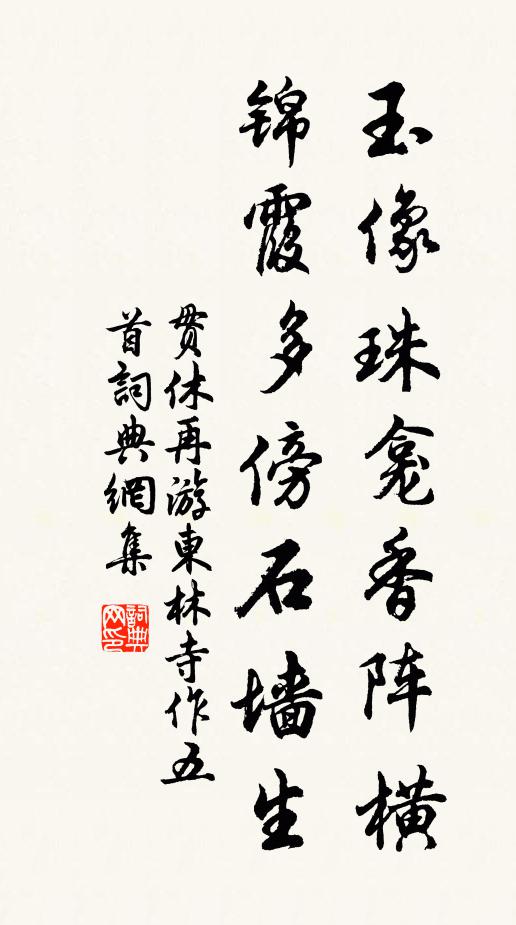 玉像珠龛香阵横
锦霞多傍石墙生
贯休再游東林寺作五
首詞典網集
詞典
网印